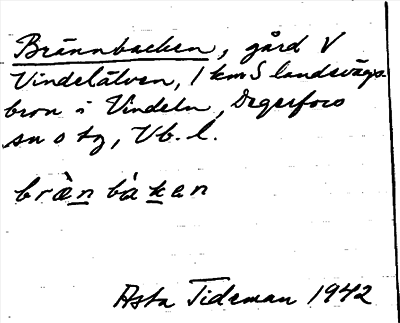 Brännbacken, gård V
Vindelälven, 1 km S landsvägs-
bron i Vindeln, Degerfors
sn o tg, Vb. l.
brä̀n bàkan
Asta Tideman 1942